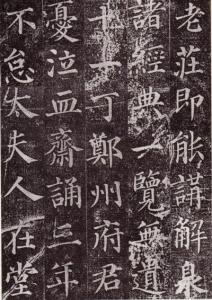 老莊即能講解泉
諸經典一覽無遺
七一丁鄭州府君
憂泣血齋誦三年
不怠太夫人在堂